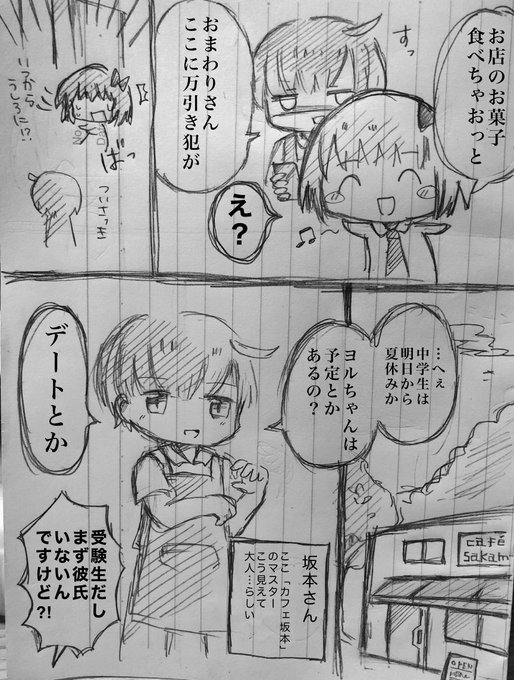 お店のお菓子
食べちゃおっと
すっ
おまわりさん
ここに万引き犯が
え？
いつから
うしろに!?
ばっ
ついさっき
…へぇ
中学生は
明日から
夏休みか
ヨルちゃんは
予定とか
あるの？
café
Sakam
OPEN
デートとか
坂本さん
ここ「カフェ坂本」
のマスター
こう見えて
大人…らしい
受験生だし
まず彼氏
いないん
ですけど?!